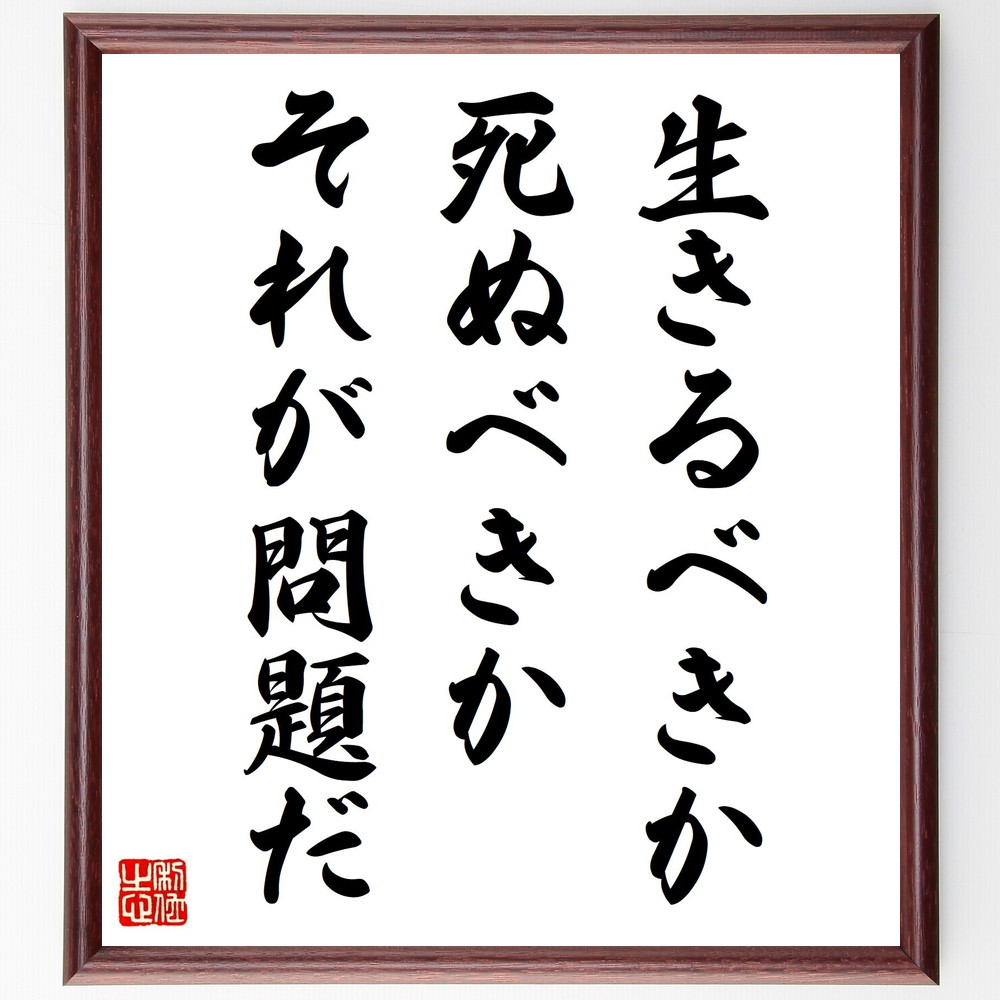 生きるべきか
死ぬべきか
それが問題だ